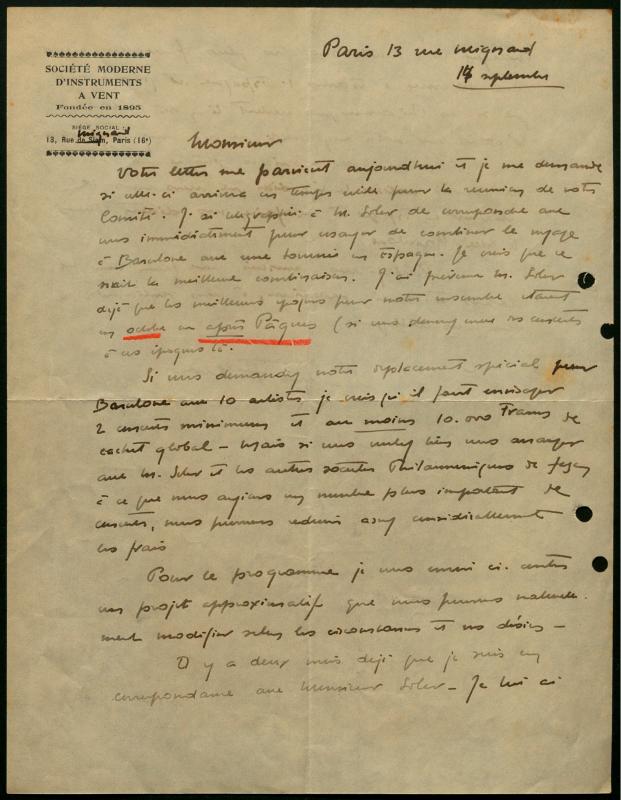 Paris 13 rue Mignard
14 septembre
SOCIÉTÉ MODERNE
D'INSTRUMENTS
A VENT
Fondée en 1895
SIÈGE SOCIAL :
Mignard
13, Rue de Siam, Paris (16e)
Monsieur
Votre lettre me parvient aujourd'hui et je me demande
si celle-ci arrivera en temps utile pour la réunion de votre
Comité. J'ai télégraphié à M. Soler de correspondre avec
vous immédiatement pour essayer de combiner le voyage
à Barcelone avec une tournée en Espagne. Je crois que ce
serait la meilleure combinaison. J'ai prévenu M. Soler
déjà que les meilleures époques pour notre ensemble étaient
en octobre ou après Pâques (si vous donnez des concerts
à ces époques là.
Si vous demandez notre déplacement spécial pour
Barcelone avec 10 artistes je crois qu'il faut envisager
2 concerts minimum et au moins 10.000 Francs de
cachet global - Mais si vous voulez bien vous arranger
avec M. Soler et les autres sociétés Philharmoniques de façon
à ce que nous ayions un nombre plus important de
concerts, nous pourrons réduire assez considérablement
les frais
Pour le programme je vous envoie ci-contre
un projet approximatif que nous pourrons naturelle-
ment modifier selon les circonstances et vos désirs -
Il y a deux mois déjà que je suis en
correspondance avec Monsieur Soler - Je lui ai